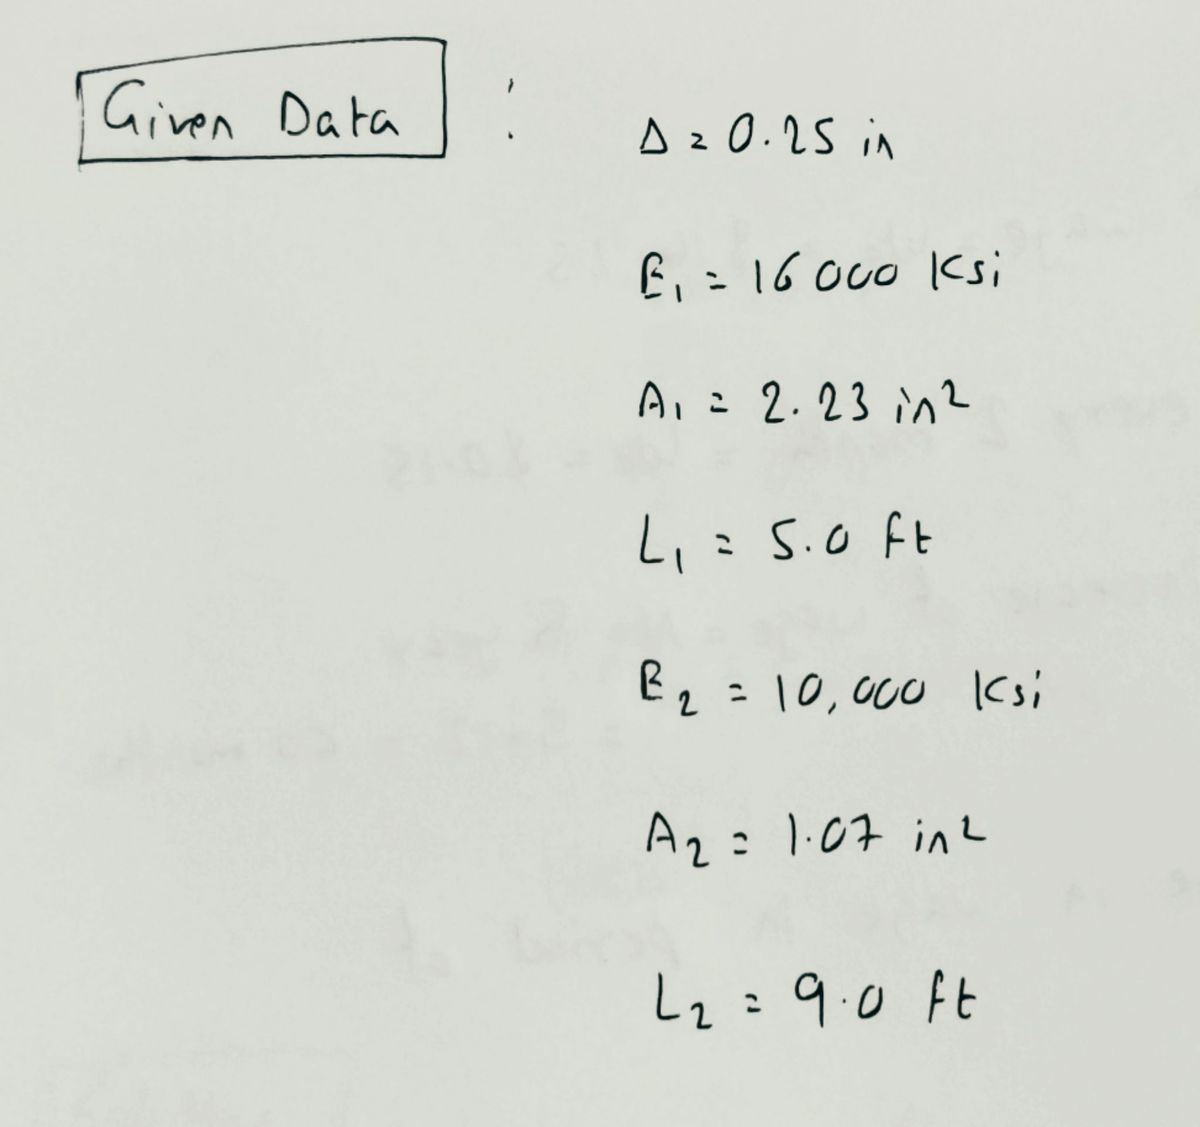 Given Data :
Δ = 0.25 in
E₁ = 16000 Ksi
A₁ = 2.23 in²
L₁ = 5.0 ft
E₂ = 10,000 Ksi
A₂ = 1.07 in²
L₂ = 9.0 ft